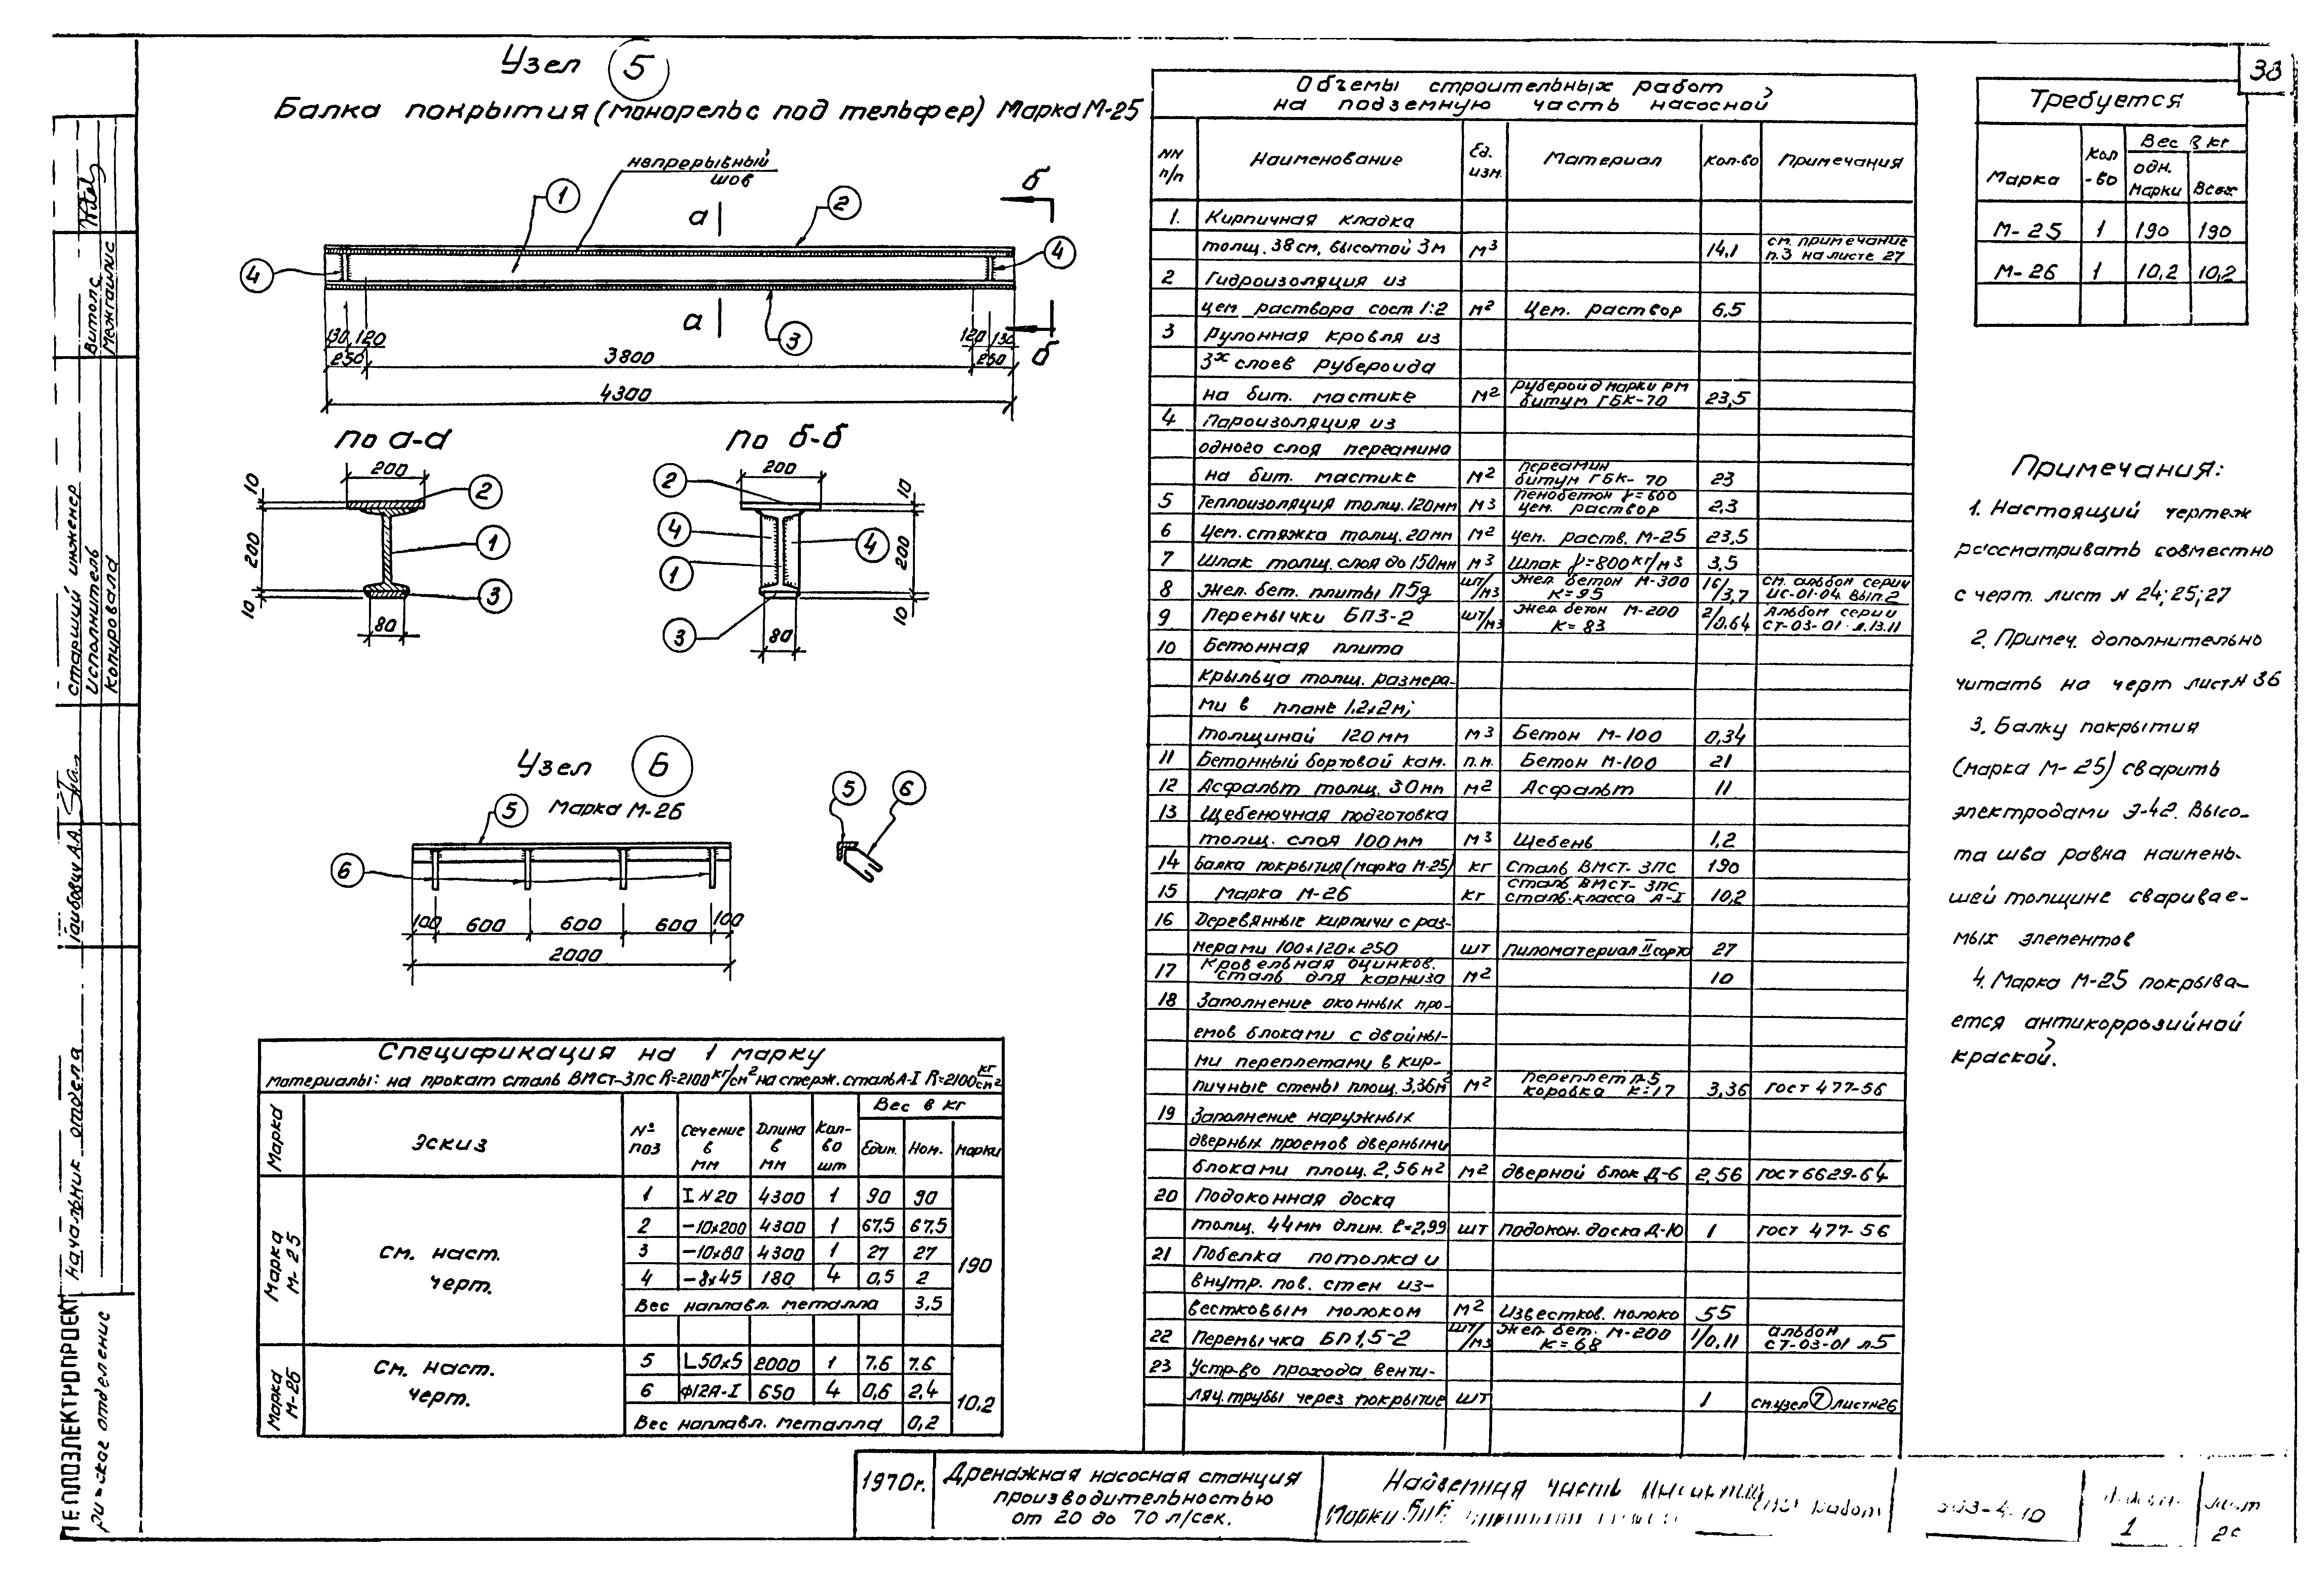 38
Узел 5
Балка покрытия (монорельс под тельфер) Марка М-25
непрерывный
шов
1
2
а
б
4
4
а
3
б
130 120
120 130
250
3800
250
4300
по а-а
по б-б
200
200
10
200
10
2
1
3
80
2
4
1
3
4
10
200
10
80
Узел 6
Марка М-26
5
6
5
6
100
600
600
600
100
2000
Спецификация на 1 марку
материалы: на прокат сталь ВМСт-3ПС R=2100 кг/см² на стерж. сталь А-I R=2100 кг/см²
Марка
Эскиз
№ поз
Сечение в мм
Длина в мм
Кол-во шт
Вес в кг
Един.
Ном.
марки
Марка М-25
См. наст. черт.
1 I N20 4300 1 90 90
2 -10х200 4300 1 67.5 67.5
3 -10х80 4300 1 27 27
4 -8х45 180 4 0,5 2
Вес наплавл. металла 3,5
190
Марка М-26
См. наст. черт.
5 L50х5 2000 1 7.6 7.6
6 ф12А-I 650 4 0,6 2,4
Вес наплавл. металла 0,2
10,2
Объемы строительных работ
на подземную часть насосной
NN п/п
Наименование
Ед. изм.
Материал
Кол-во
Примечания
1. Кирпичная кладка
толщ. 38 см, высотой 3 м м3 14,1 см. примечание п.3 на листе 27
2 Гидроизоляция из
цем раствора сост 1:2 м2 Цем. раствор 6,5
3 Рулонная кровля из
3х слоев рубероида
на бит. мастике м2 рубероид марки РМ битум ГБК-70 23,5
4 Пароизоляция из
одного слоя пергамина
на бит. мастике м2 пергамин битум ГБК-70 23
5 Теплоизоляция толщ. 120мм м3 пенобетон γ=600 цем. раствор 2,3
6 Цем. стяжка толщ. 20мм м2 цем. раств. М-25 23,5
7 Шлак толщ. слоя до 150мм м3 Шлак γ=800кг/м3 3,5
8 Жел. бет. плиты П5д шт/м3 жел. бетон М-300 К=95 16/3,7 см. альбом серии ИС-01-04 Вып.2
9 Перемычки БП3-2 шт/м3 жел. бетон М-200 К=83 2/0.64 Альбом серии СТ-03-01 л.13.11
10 Бетонная плита
крыльца толщ. размера-
ми в плане 1.2х2м;
толщиной 120мм м3 Бетон М-100 0,34
11 Бетонный бортовой кам. п.м. Бетон М-100 21
12 Асфальт толщ. 30мм м2 Асфальт 11
13 Щебеночная подготовка
толщ. слоя 100мм м3 Щебень 1,2
14 Балка покрытия (марка М-25) кг Сталь ВМСт-3ПС 190
15 Марка М-26 кг Сталь ВМСт-3ПС сталь класса А-I 10,2
16 Деревянные кирпичи с раз-
мерами 100х120х250 шт Пиломатериал II сорта 27
17 Кровельная оцинков. сталь для карниза м2 10
18 Заполнение оконных про-
емов блоками с двойны-
ми переплетами в кир-
пичные стены площ. 3,36м² м2 переплет п-5 коробка К=17 3,36 гост 477-56
19 Заполнение наружных
дверных проемов дверными
блоками площ. 2,56м2 м2 дверной блок Д-6 2,56 гост 6629-64
20 Подоконная доска
толщ. 44мм длин. ℓ=2,99 шт Подокон. доска Д-10 1 гост 477-56
21 Побелка потолка и
внутр. пов. стен из-
вестковым молоком м2 Известков. молоко 55
22 Перемычка БП1,5-2 шт/м3 Жел. бет. М-200 К=68 1/0,11 альбом СТ-03-01 л.5
23 Устр-во прохода венти-
ляц. трубы через покрытие шт 1 см. узел 7 лист N26
Требуется
Марка
Кол-во
Вес в кг
одн. марки
Всех
М-25 1 190 190
М-26 1 10,2 10,2
Примечания:
1. Настоящий чертеж
рассматривать совместно
с черт. лист N 24; 25; 27
2. Примеч. дополнительно
читать на черт лист N 36
3. Балку покрытия
(марка М-25) сварить
электродами Э-42. Высо-
та шва равна наимень-
шей толщине сваривае-
мых элементов
4. Марка М-25 покрыва-
ется антикоррозийной
краской.
1970г.
Дренажная насосная станция
производительностью
от 20 до 70 л/сек.
Надземная часть
Марки
работ
1
лист
ТЕПЛОЭЛЕКТРОПРОЕКТ
отделение
начальник отдела
Гаибович А.А.
старший инженер
исполнитель
копировала
Витолс
Межгаилис